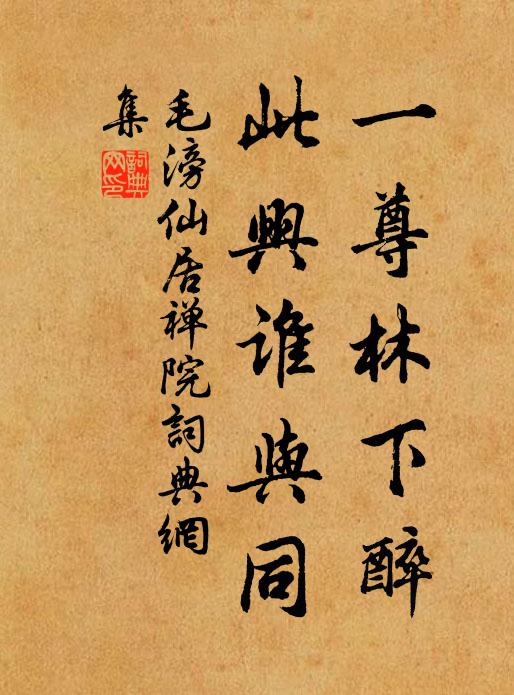 一尊林下醉
此興誰與同
毛滂仙居禅院詞典網
集
詞典
网印